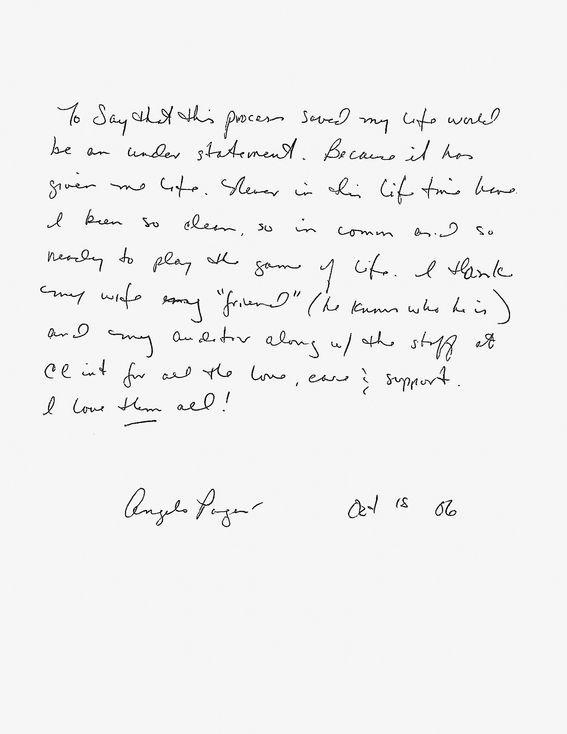 To Say that this process saved my life would
be an under statement. Because it has
given me life. Never in this life time have
I been so clean, so in comm and so
ready to play the game of life. I thank
my wife my "friend" (he knows who he is)
and my auditor along w/ the staff at
CC int for all the love, care & support.
I love them all!
Angelo Oct 18 06